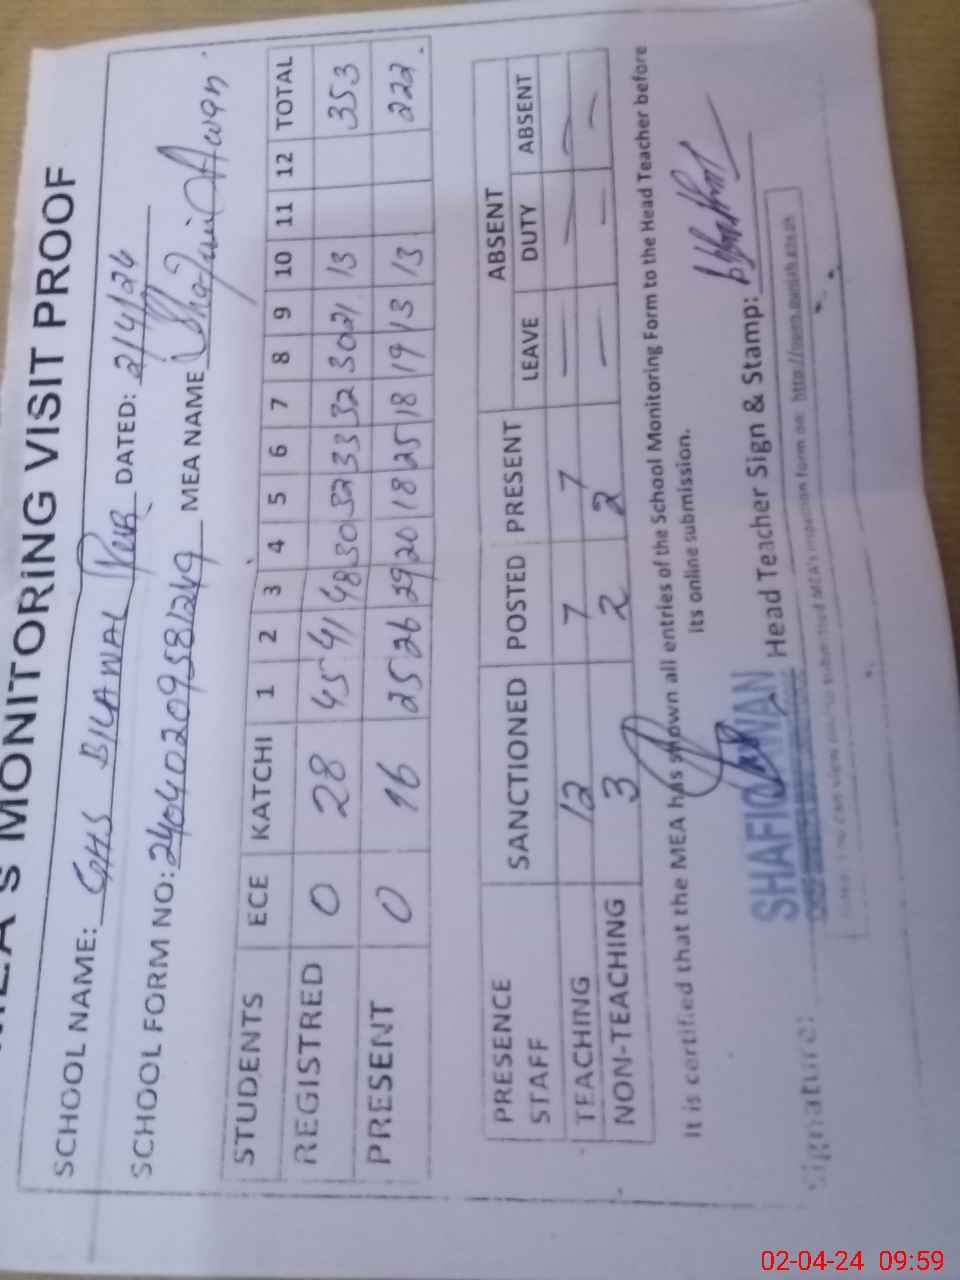 MEA'S MONITORING VISIT PROOF
SCHOOL NAME: GHS BILAWAL DATED: 2/4/24
SCHOOL FORM NO: MEA NAME Awan
STUDENTS ECE KATCHI 1 2 3 4 5 6 7 8 9 10 11 12 TOTAL
REGISTRED 0 28 45 41 48 30 32 33 32 30 21 13 353
PRESENT 0 16 25 26 29 20 18 25 18 19 13 13 222
PRESENCE STAFF SANCTIONED POSTED PRESENT ABSENT
LEAVE DUTY ABSENT
TEACHING 12 7 7 — — —
NON-TEACHING 3 2 2 — — —
It is certified that the MEA has shown all entries of the School Monitoring Form to the Head Teacher before
its online submission.
Head Teacher Sign & Stamp:
SHAFIQ AWAN
Signature:
02-04-24 09:59